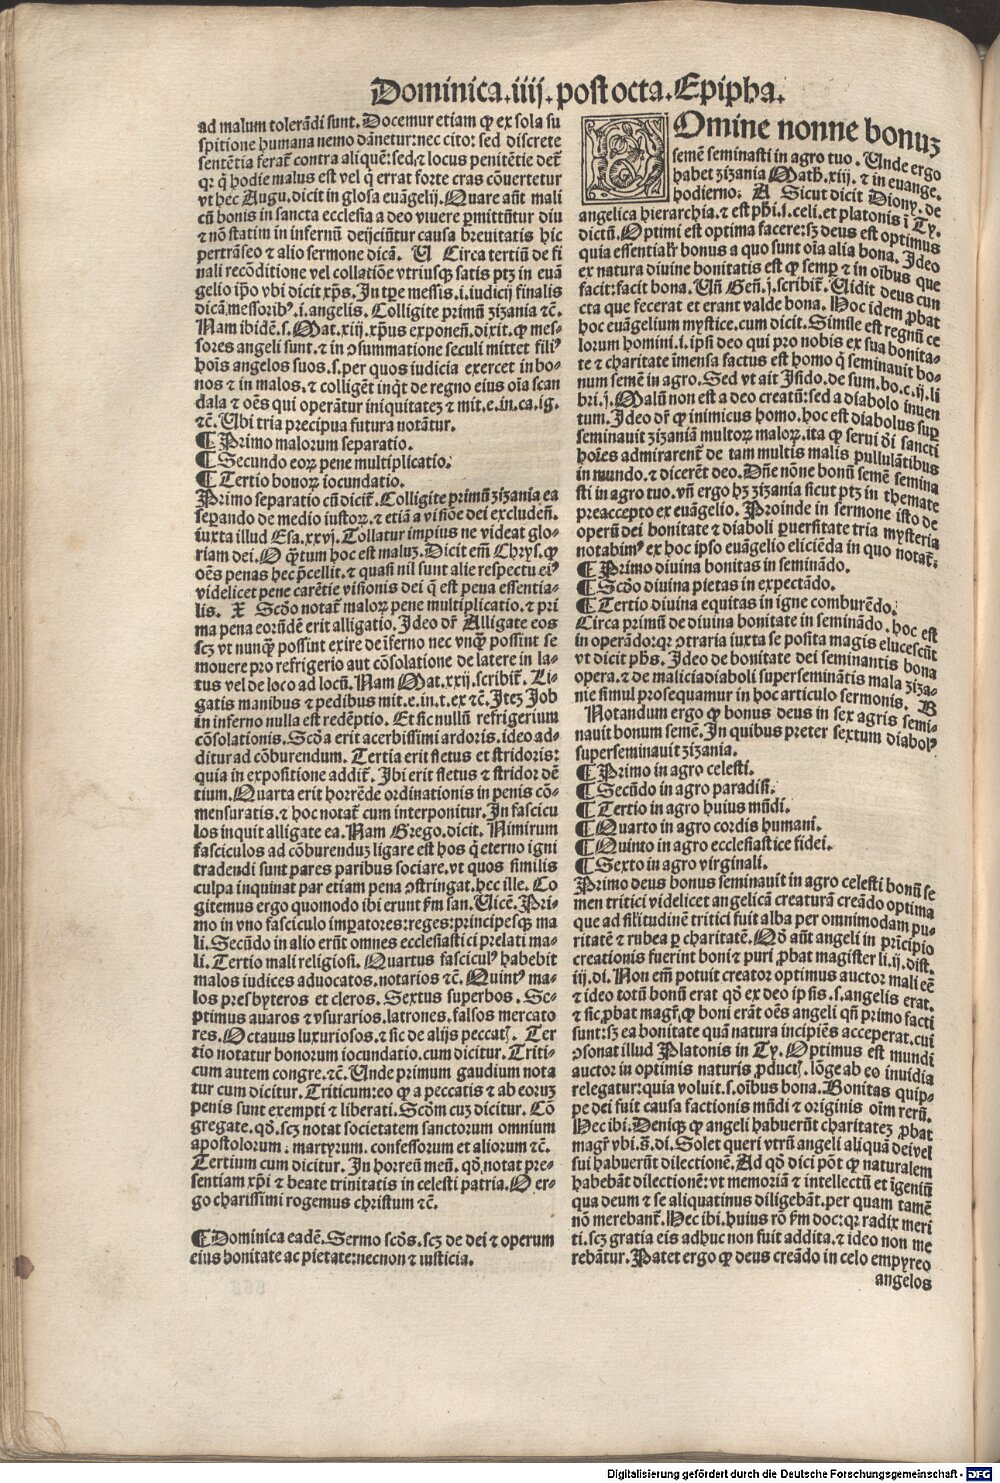 Dominica.iiij.post octa.Epipha.
ad malum tolerãdi sunt. Docemur etiam ꝙ ex sola su
spitione humana nemo dãnetur: nec cito: sed discrete
sentẽtia ferat̃ contra aliquẽ: sed ⁊ locus penitẽtie det̃
qꝛ q̃ hodie malus est vel q̃ errat forte cras cõuertetur
vt hec Augu. dicit in glosa euãgelij. Quare aũt mali
cũ bonis in sancta ecclesia a deo viuere ꝑmittũtur diu
⁊ nõ statim in infernũ deijciũtur causa breuitatis hic
pertrãseo ⁊ alio sermone dicã. V Circa tertiũ de fi
nali recõditione vel collatiõe vtriusqꝫ satis ptꝫ in euã
gelio ip̃o vbi dicit xp̃s. In tp̃e messis.i.iudicij finalis
dicã messoribꝰ.i.angelis. Colligite primũ zizania ⁊c̃.
Nam ibidẽ.s. Mat.xiij.xp̃us exponeñ. dixit. ꝙ mes-
sores angeli sunt. ⁊ in ↄsummatione seculi mittet filiꝰ
hoĩs angelos suos.s.per quos iudicia exercet in bo-
nos ⁊ in malos. ⁊ colligẽt inq̃t de regno eius oĩa scan
dala ⁊ oẽs qui operãtur iniquitateꝫ ⁊ mit.e.in.ca.ig.
⁊c̃. Vbi tria precipua futura notãtur.
¶ Primo malorum separatio.
¶ Secundo eoꝝ pene multiplicatio.
¶ Tertio bonoꝝ iocundatio.
Primo separatio cũ dicit̃. Colligite primũ zizania ea
seꝑando de medio iustoꝝ. ⁊ etiã a visiõe dei excludeñ.
iuxta illud Esa.xxvj. Tollatur impius ne videat glo-
riam dei. O q̃ꝫtum hoc est maluꝫ. Dicit em̃ Chrys. ꝙ
oẽs penas hec p̃cellit. ⁊ quasi nil sunt alie respectu eiꝰ
videlicet pene carẽtie visionis dei q̃ est pena essentia-
lis. X Scd̃o notat̃ maloꝝ pene multiplicatio. ⁊ pri
ma pena eorũdẽ erit alligatio. Ideo dr̃ Alligate eos
scꝫ vt nunq̃ꝫ possint exire de ĩferno nec vnq̃ꝫ possint se
mouere pro refrigerio aut cõsolatione de latere in la-
tus vel de loco ad locũ. Nam Mat.xxij.scribit̃. Li-
gatis manibus ⁊ pedibus mit.e.in.t.ex ⁊c̃. Iteꝫ Job
in inferno nulla est redẽptio. Et sic nullũ refrigerium
cõsolationis. Scd̃a erit acerbissimi ardoris. ideo ad-
ditur ad cõburendum. Tertia erit fletus et stridoris:
quia in expositione addit̃. Ibi erit fletus ⁊ stridor dẽ
tium. Quarta erit horrẽde ordinationis in penis cõ-
mensuratis. ⁊ hoc notat̃ cum interponitur. In fascicu
los inquit alligate ea. Nam Grego. dicit. Nimirum
fasciculos ad cõburenduꝫ ligare est hos q̃ eterno igni
tradendi sunt pares paribus sociare. vt quos similis
culpa inquinat par etiam pena ↄstringat. hec ille. Co
gitemus ergo quomodo ibi erunt ẜm san. Vicẽ. Pri-
mo in vno fasciculo imꝑatores: reges: principesqꝫ ma
li. Secũdo in alio erũt omnes ecclesiastici prelati ma-
li. Tertio mali religiosi. Quartus fasciculꝰ habebit
malos iudices aduocatos. notarios ⁊c̃. Quintꝰ ma-
los presbyteros et cleros. Sextus superbos. Se-
ptimus auaros ⁊ vsurarios. latrones. falsos mercato
res. Octauus luxuriosos. ⁊ sic de alijs peccat̃. Ter
tio notatur bonorum iocundatio. cum dicitur. Triti-
cum autem congre. ⁊c̃. Vnde primum gaudium nota
tur cum dicitur. Triticum: eo ꝙ a peccatis ⁊ ab eoruꝫ
penis sunt exempti ⁊ liberati. Scd̃m cuꝫ dicitur. Cõ
gregate. qd̃.scꝫ notat societatem sanctorum omnium
apostolorum: martyrum. confessorum et aliorum ⁊c̃.
Tertium cum dicitur. In horreũ meũ. qd̃ notat pre-
sentiam xp̃i ⁊ beate trinitatis in celesti patria. O er-
go charissimi rogemus christum ⁊c̃.
¶ Dominica eadẽ. Sermo scd̃s. scꝫ de dei ⁊ operum
eius bonitate ac pietate: necnon ⁊ iusticia.
Domine nonne bonuꝫ
semẽ seminasti in agro tuo. Vnde ergo
habet zizania Math.xiij. ⁊ in euange.
hodierno. A Sicut dicit Diony. de
angelica hierarchia. ⁊ est ph̃i.j.celi. et platonis ĩ Ty.
dictũ. Optimi est optima facere: sꝫ deus est optimus
quia essentialr̃ bonus a quo sunt oĩa alia bona. Ideo
ex natura diuine bonitatis est ꝙ semꝑ ⁊ in oĩbus que
facit: facit bona. Vñ Geñ.j.scribit̃. Vidit deus cun
cta que fecerat et erant valde bona. Hoc idem ꝓbat
hoc euãgelium mystice. cum dicit. Simile est regnũ ce
lorum homini.i.ipsi deo qui pro nobis ex sua bonita-
te ⁊ charitate ĩmensa factus est homo q̃ seminauit bo-
num semẽ in agro. Sed vt ait Isido. de sum.bo.c.ij.li
bri.j. Malũ non est a deo creatũ: sed a diabolo inuen
tum. Ideo dr̃ ꝙ inimicus homo. hoc est diabolus suꝑ
seminauit zizaniã multoꝝ maloꝝ. ita ꝙ serui dei sancti
hoĩes admirarent̃ de tam multis malis pullulãtibus
in mundo. ⁊ dicerẽt deo. Dñe nõne bonũ semẽ semina
sti in agro tuo. vñ ergo hꝫ zizania sicut ptꝫ in themate
preaccepto ex euãgelio. Proinde in sermone isto de
operũ dei bonitate ⁊ diaboli ꝑuersitate tria mysteria
notabimꝰ ex hoc ipso euãgelio eliciẽda in quo notat̃.
¶ Primo diuina bonitas in seminãdo.
¶ Scd̃o diuina pietas in expectãdo.
¶ Tertio diuina equitas in igne comburẽdo.
Circa primũ de diuina bonitate in seminãdo. hoc est
in operãdo: qꝛ ↄtraria iuxta se posita magis elucescũt
vt dicit ph̃s. Ideo de bonitate dei seminantis bona
opera. ⁊ de malicia diaboli superseminãtis mala ziza-
nie simul prosequamur in hoc articulo sermonis. B
Notandum ergo ꝙ bonus deus in sex agris semi-
nauit bonum semẽ. In quibus preter sextum diabolꝰ
superseminauit zizania.
¶ Primo in agro celesti.
¶ Secũdo in agro paradisi.
¶ Tertio in agro huius mũdi.
¶ Quarto in agro cordis humani.
¶ Quinto in agro ecclesiastice fidei.
¶ Sexto in agro virginali.
Primo deus bonus seminauit in agro celesti bonũ se
men tritici videlicet angelicã creaturã creãdo optima
que ad sil̃itudinẽ tritici fuit alba per omnimodam pu-
ritatẽ ⁊ rubea ꝑ charitatẽ. Qd̃ aũt angeli in prĩcipio
creationis fuerint boni ⁊ puri ꝓbat magister li.ij.dist.
iij.di. Non em̃ potuit creator optimus auctor mali eẽ
⁊ ideo totũ bonũ erat qd̃ ex deo ipsis.s.angelis erat.
⁊ sic ꝓbat magr̃. ꝙ boni erãt oẽs angeli qñ primo facti
sunt: sꝫ ea bonitate quã natura incipiẽs acceperat. cui
ↄsonat illud Platonis in Ty. Optimus est mundi
auctor in optimis naturis ꝓduct̃. lõge ab eo inuidia
relegatur: quia voluit.s.oĩbus bona. Bonitas quip-
pe dei fuit causa factionis mũdi ⁊ originis oĩm rerũ.
Hec ibi. Deniqꝫ ꝙ angeli habuerũt charitateꝫ ꝓbat
magr̃ vbi.s̃.di. Solet queri vtrũ angeli aliquã dei vel
sui habuerũt dilectionẽ. Ad qd̃ dici põt ꝙ naturalem
habebãt dilectionẽ: vt memoriã ⁊ intellectũ et ĩgeniũ
qua deum ⁊ se aliquatinus diligebãt. per quam tamẽ
nõ merebant̃. Hec ibi. huius rõ ẜm doc: qꝛ radix meri
ti. scꝫ gratia eis adhuc non fuit addita. ⁊ ideo non me
rebãtur. Patet ergo ꝙ deus creãdo in celo empyreo
angelos
Digitalisierung gefördert durch die Deutsche Forschungsgemeinschaft - DFG